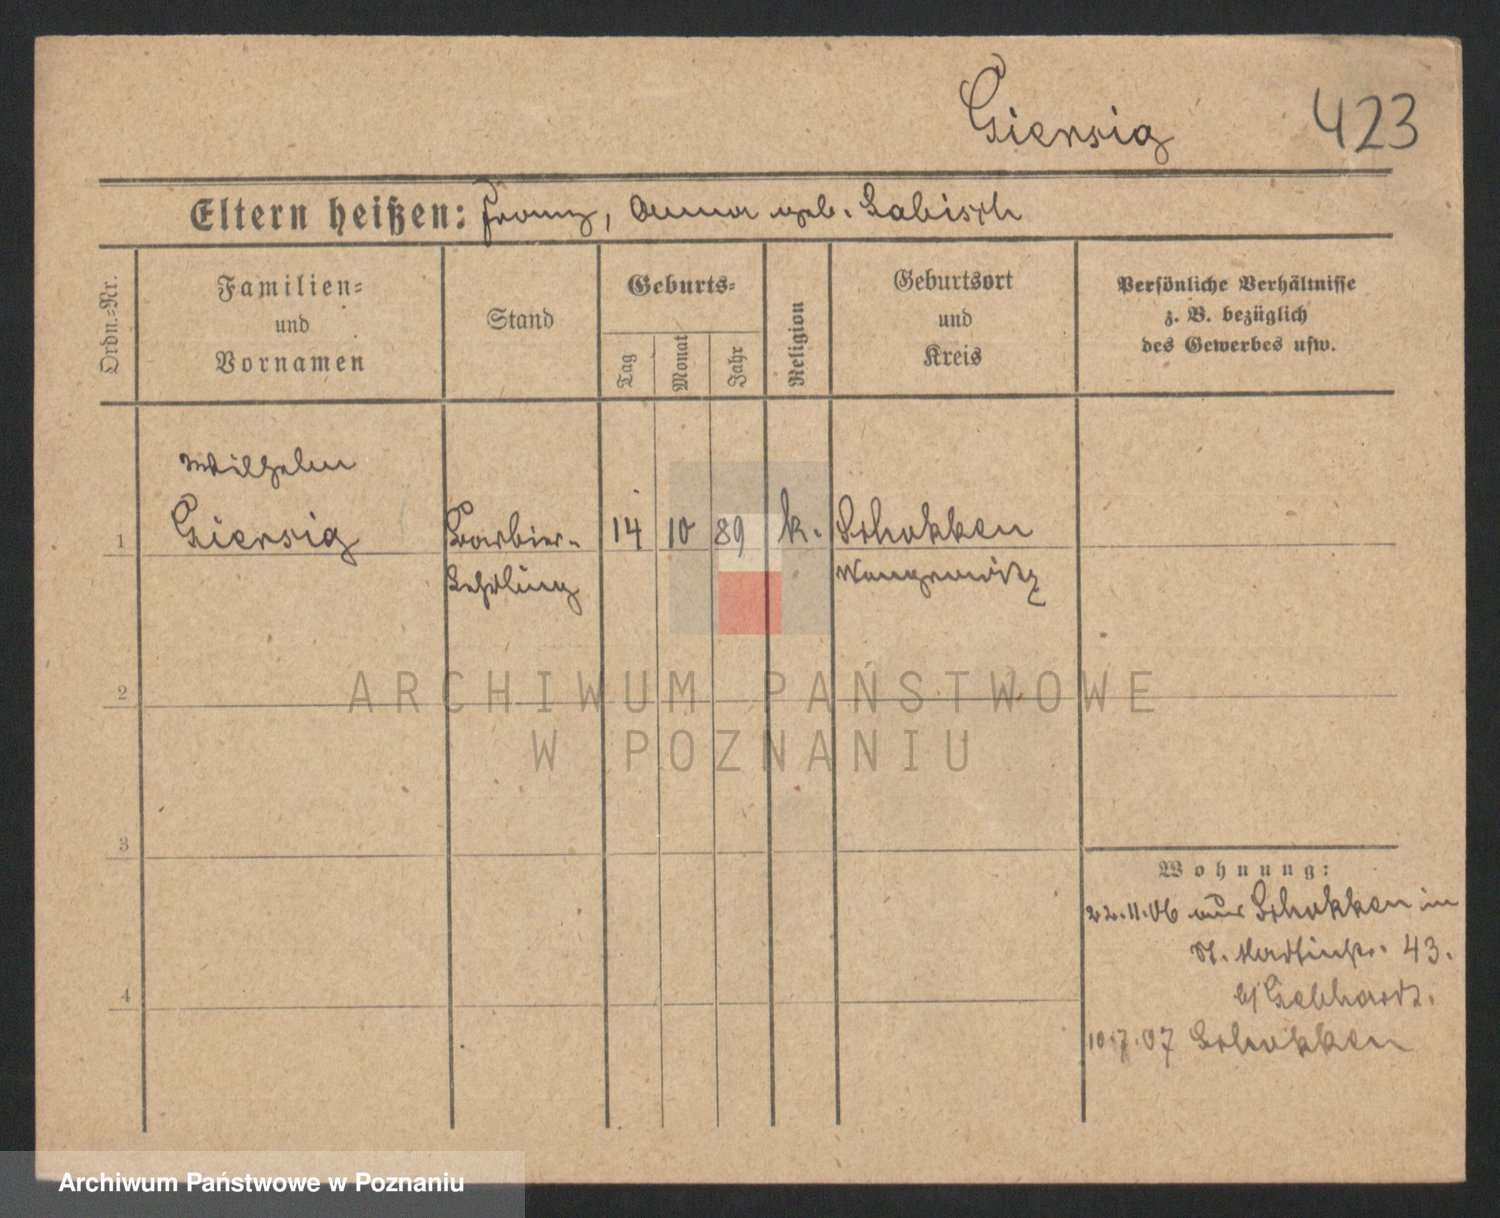 Giersig 423
Eltern heißen: Franz, Anna geb. Labisch
Ordn.-Nr.
Familien-
und
Vornamen
Stand
Geburts-
Tag
Monat
Jahr
Religion
Geburtsort
und
Kreis
Persönliche Verhältnisse
z. B. bezüglich
des Gewerbes usw.
Wilhelm
1 Giersig Barbier- 14 10 89 k. Schokken
Lehrling Wongrowitz
2
ARCHIWUM PAŃSTWOWE
W POZNANIU
3
Wohnung:
22.11.06 aus Schokken in
St. Martinstr. 43.
b/ Gebhardt.
4
10.7.07 Schokken
Archiwum Państwowe w Poznaniu